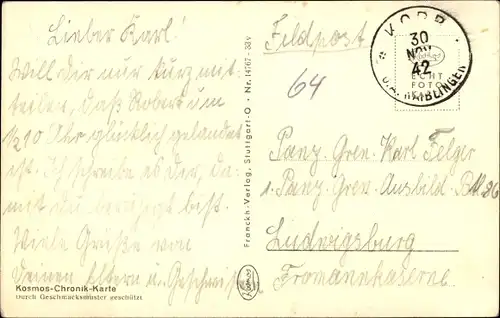 Lieber Karl!
Will Dir nur kurz mit-
teilen, daß Robert um
1/2 10 Uhr glücklich gelandet
ist. Ich schreibe es dir, da-
mit du beruhigt bist.
Viele Grüße von
Deinen Eltern u. Geschwistern.
Kosmos-Chronik-Karte
Durch Geschmacksmuster geschützt
Franckh-Verlag, Stuttgart-O · Nr. 14767 - 33v
Kosmos
Feldpost
64
KORB
30
NOV
42
ECHT
FOTO
WAIBLINGEN
Panz. Gren. Karl Felger
1. Panz. Gren. Ausbild. Btl. 86
Ludwigsburg
Fromannkaserne.